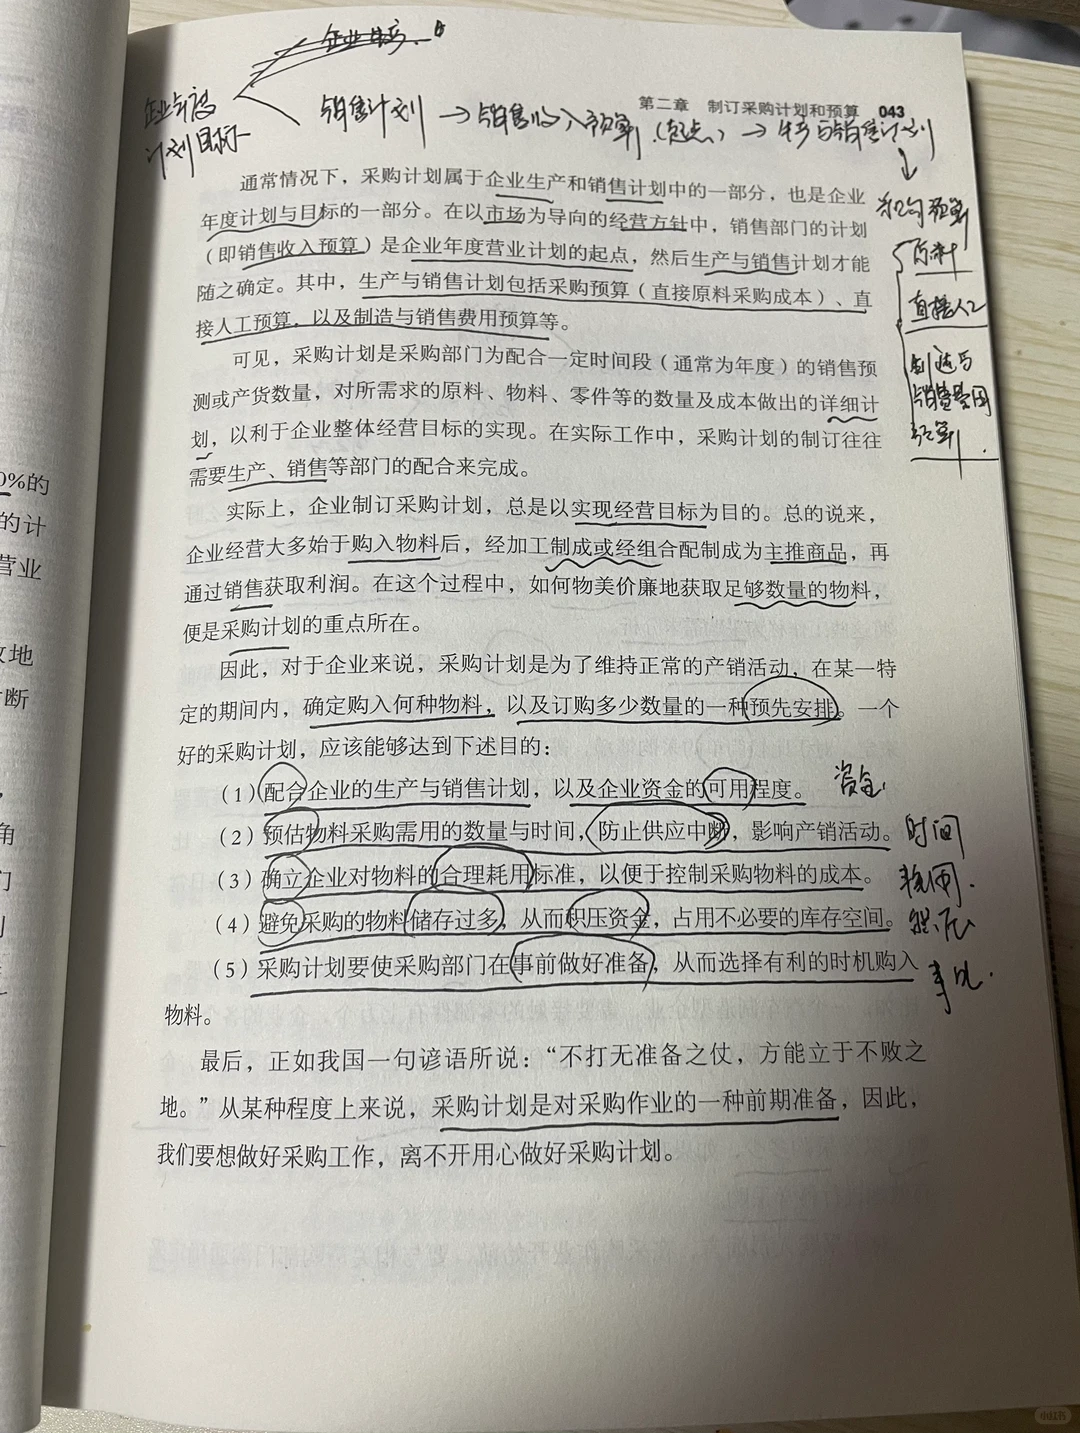 企业年度
计划目标
销售计划 → 销售收入预算(起点) → 生产与销售计划
第二章 制订采购计划和预算 043
采购预算
原料
直接人工
制造与
销售费用
预算
通常情况下，采购计划属于企业生产和销售计划中的一部分，也是企业
年度计划与目标的一部分。在以市场为导向的经营方针中，销售部门的计划
（即销售收入预算）是企业年度营业计划的起点，然后生产与销售计划才能
随之确定。其中，生产与销售计划包括采购预算（直接原料采购成本）、直
接人工预算，以及制造与销售费用预算等。
可见，采购计划是采购部门为配合一定时间段（通常为年度）的销售预
测或产货数量，对所需求的原料、物料、零件等的数量及成本做出的详细计
划，以利于企业整体经营目标的实现。在实际工作中，采购计划的制订往往
需要生产、销售等部门的配合来完成。
实际上，企业制订采购计划，总是以实现经营目标为目的。总的说来，
企业经营大多始于购入物料后，经加工制成或经组合配制成为主推商品，再
通过销售获取利润。在这个过程中，如何物美价廉地获取足够数量的物料，
便是采购计划的重点所在。
因此，对于企业来说，采购计划是为了维持正常的产销活动，在某一特
定的期间内，确定购入何种物料，以及订购多少数量的一种预先安排。一个
好的采购计划，应该能够达到下述目的：
（1）配合企业的生产与销售计划，以及企业资金的可用程度。 资金
（2）预估物料采购需用的数量与时间，防止供应中断，影响产销活动。 时间
（3）确立企业对物料的合理耗用标准，以便于控制采购物料的成本。
（4）避免采购的物料储存过多，从而积压资金，占用不必要的库存空间。
（5）采购计划要使采购部门在事前做好准备，从而选择有利的时机购入
物料。
最后，正如我国一句谚语所说：“不打无准备之仗，方能立于不败之
地。”从某种程度上来说，采购计划是对采购作业的一种前期准备，因此，
我们要想做好采购工作，离不开用心做好采购计划。
0%的
的计
营业
地
断
角
们
小红书